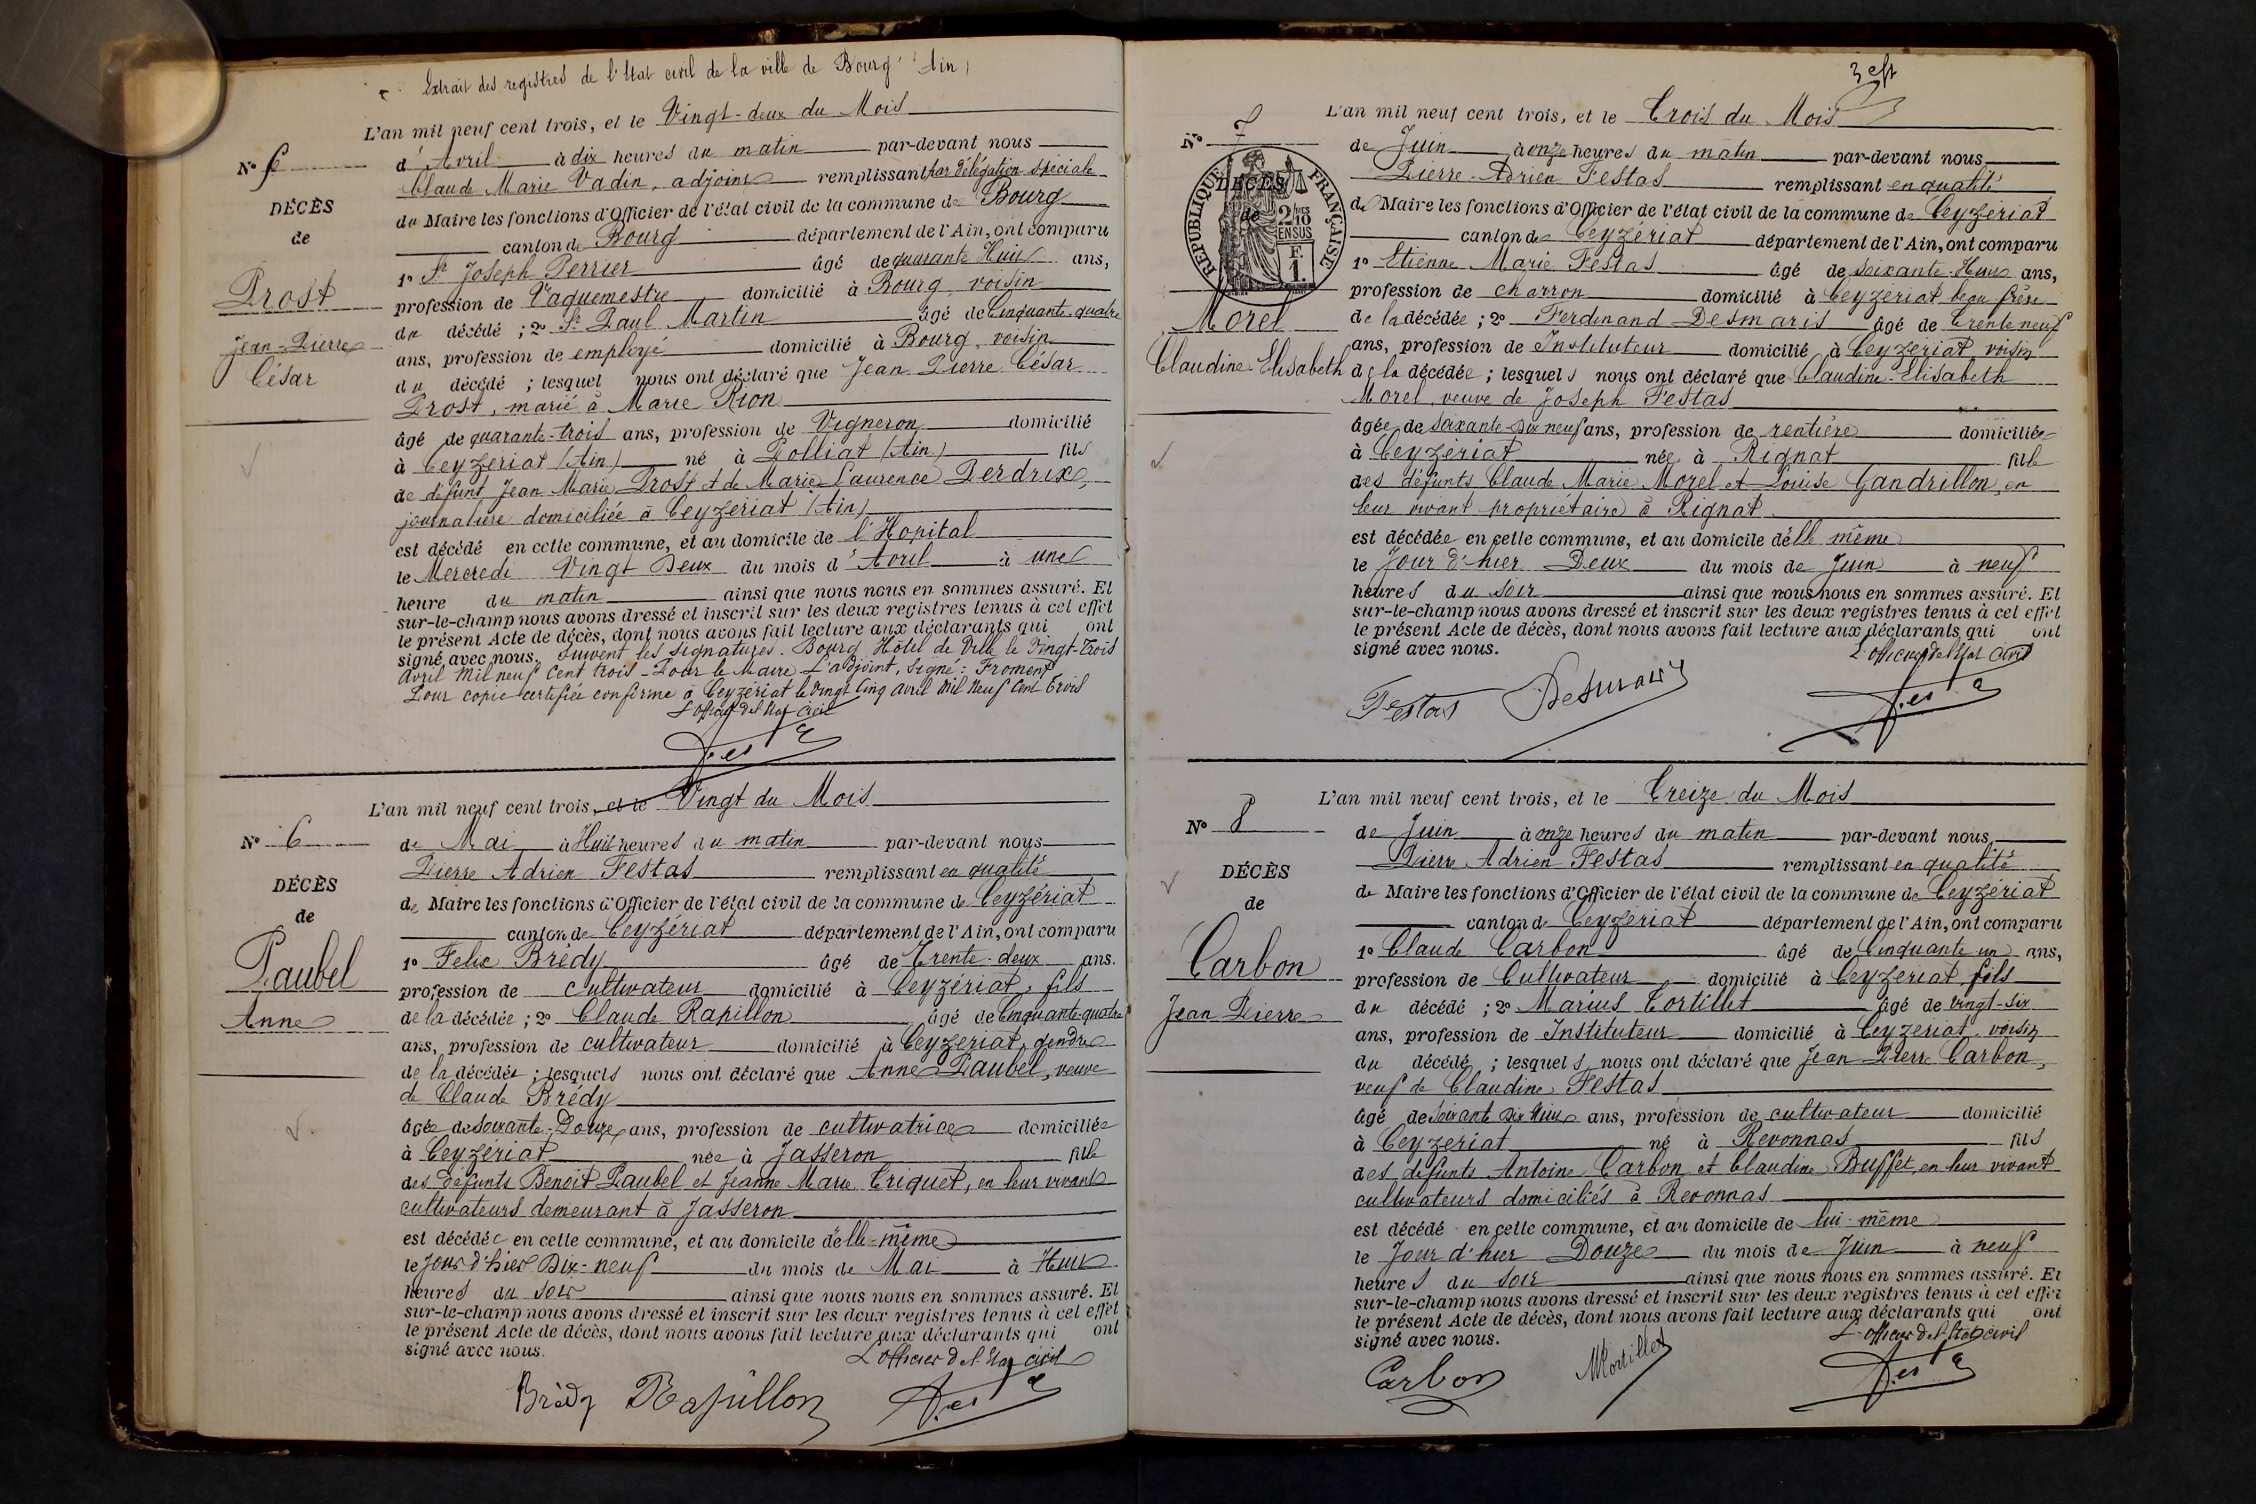 Extrait des registres de l'Etat civil de la ville de Bourg (Ain)
L'an mil neuf cent trois, et le Vingt-deux du Mois
N° 5
d'Avril à dix heures du matin par-devant nous
Claude Marie Vadin, adjoint remplissant par délégation spéciale
DÉCÈS
du Maire les fonctions d'Officier de l'état civil de la commune de Bourg
de
canton de Bourg département de l'Ain, ont comparu
1° Sr Joseph Perrier âgé de quarante Huit ans,
Prost
profession de Vaguemestre domicilié à Bourg, voisin
du décédé ; 2° Sr Paul Martin âgé de Cinquante-quatre
Jean-Pierre
ans, profession de employé domicilié à Bourg, voisin
César
du décédé ; lesquel nous ont déclaré que Jean Pierre César
Prost, marié à Marie Rion
âgé de quarante-trois ans, profession de Vigneron domicilié
à Ceyzériat (Ain) né à Polliat (Ain) fils
de défunt Jean Marie Prost et de Marie Laurence Perdrix,
journalière domiciliée à Ceyzériat (Ain)
est décédé en cette commune, et au domicile de l'Hopital
le Mercredi Vingt Deux du mois d'Avril à une
heure du matin ainsi que nous nous en sommes assuré. Et
sur-le-champ nous avons dressé et inscrit sur les deux registres tenus à cet effet
le présent Acte de décès, dont nous avons fait lecture aux déclarants qui ont
signé avec nous. Suivent les signatures. Bourg Hôtel de Ville le Vingt-trois
Avril Mil neuf Cent trois - Pour le Maire L'adjoint, signé : Froment
Pour copie certifiée conforme à Ceyzériat le vingt Cinq avril Mil Neuf Cent Trois
L'officier de l'Etat Civil
L'an mil neuf cent trois, et le Vingt du Mois
N° 6
de Mai à Huit heures du matin par-devant nous
Pierre Adrien Festas remplissant en qualité
DÉCÈS
de Maire les fonctions d'Officier de l'état civil de la commune de Ceyzériat
de
canton de Ceyzériat département de l'Ain, ont comparu
1° Felix Brédy âgé de Trente-deux ans.
Paubel
profession de cultivateur domicilié à Ceyzériat, fils
Anne
de la décédée ; 2° Claude Rapillon âgé de Cinquante-quatre
ans, profession de cultivateur domicilié à Ceyzériat, gendre
de la décédée ; lesquels nous ont déclaré que Anne Paubel, veuve
de Claude Brédy
âgée de soixante-Douze ans, profession de cultivatrice domiciliée
à Ceyzériat née à Jasseron fille
des défunts Benoit Paubel et Jeanne Marie Triquet, en leur vivant
cultivateurs demeurant à Jasseron
est décédée en cette commune, et au domicile d'elle-même
le Jour d'hier Dix-neuf du mois de Mai à Huit
heures du soir ainsi que nous nous en sommes assuré. Et
sur-le-champ nous avons dressé et inscrit sur les deux registres tenus à cet effet
le présent Acte de décès, dont nous avons fait lecture aux déclarants qui ont
signé avec nous.
L'officier de l'Etat civil
Brédy Rapillon
L'an mil neuf cent trois, et le Trois du Mois
N° 7
de Juin à onze heures du matin par-devant nous
Pierre-Adrien Festas remplissant en qualité
RÉPUBLIQUE FRANÇAISE
2/10 EN SUS
F. 1.
DÉCÈS
de
de Maire les fonctions d'Officier de l'état civil de la commune de Ceyzériat
canton de Ceyzériat département de l'Ain, ont comparu
1° Etienne Marie Festas âgé de soixante-Huit ans,
profession de charron domicilié à Ceyzériat, beau frère
Morel
de la décédée ; 2° Ferdinand Desmaris âgé de trente neuf
ans, profession de Instituteur domicilié à Ceyzériat, voisin
Claudine-Elisabeth
de la décédée ; lesquels nous ont déclaré que Claudine-Elisabeth
Morel, veuve de Joseph Festas
âgée de soixante-Dix neuf ans, profession de rentière domiciliée
à Ceyzériat née à Rignat fille
des défunts Claude Marie Morel et Louise Gandrillon, en
leur vivant propriétaire à Rignat
est décédée en cette commune, et au domicile d'elle même
le Jour d'hier Deux du mois de Juin à neuf
heures du soir ainsi que nous nous en sommes assuré. Et
sur-le-champ nous avons dressé et inscrit sur les deux registres tenus à cet effet
le présent Acte de décès, dont nous avons fait lecture aux déclarants qui ont
signé avec nous.
L'officier de l'Etat Civil
Festas Desmaris
L'an mil neuf cent trois, et le Treize du Mois
N° 8
de Juin à onze heures du matin par-devant nous
Pierre Adrien Festas remplissant en qualité
DÉCÈS
de Maire les fonctions d'Officier de l'état civil de la commune de Ceyzériat
de
canton de Ceyzériat département de l'Ain, ont comparu
1° Claude Carbon âgé de Cinquante un ans,
Carbon
profession de Cultivateur domicilié à Ceyzériat, fils
Jean Pierre
du décédé ; 2° Marius Tortillet âgé de vingt-six
ans, profession de Instituteur domicilié à Ceyzériat, voisin
du décédé ; lesquels nous ont déclaré que Jean Pierre Carbon,
veuf de Claudine Festas
âgé de soixante Dix Huit ans, profession de cultivateur domicilié
à Ceyzériat né à Revonnas fils
des défunts Antoine Carbon et Claudine Buffet, en leur vivant
cultivateurs domiciliés à Revonnas
est décédé en cette commune, et au domicile de lui-même
le Jour d'hier Douze du mois de Juin à neuf
heures du soir ainsi que nous nous en sommes assuré. Et
sur-le-champ nous avons dressé et inscrit sur les deux registres tenus à cet effet
le présent Acte de décès, dont nous avons fait lecture aux déclarants qui ont
signé avec nous.
L'officier de l'Etat civil
Carbon